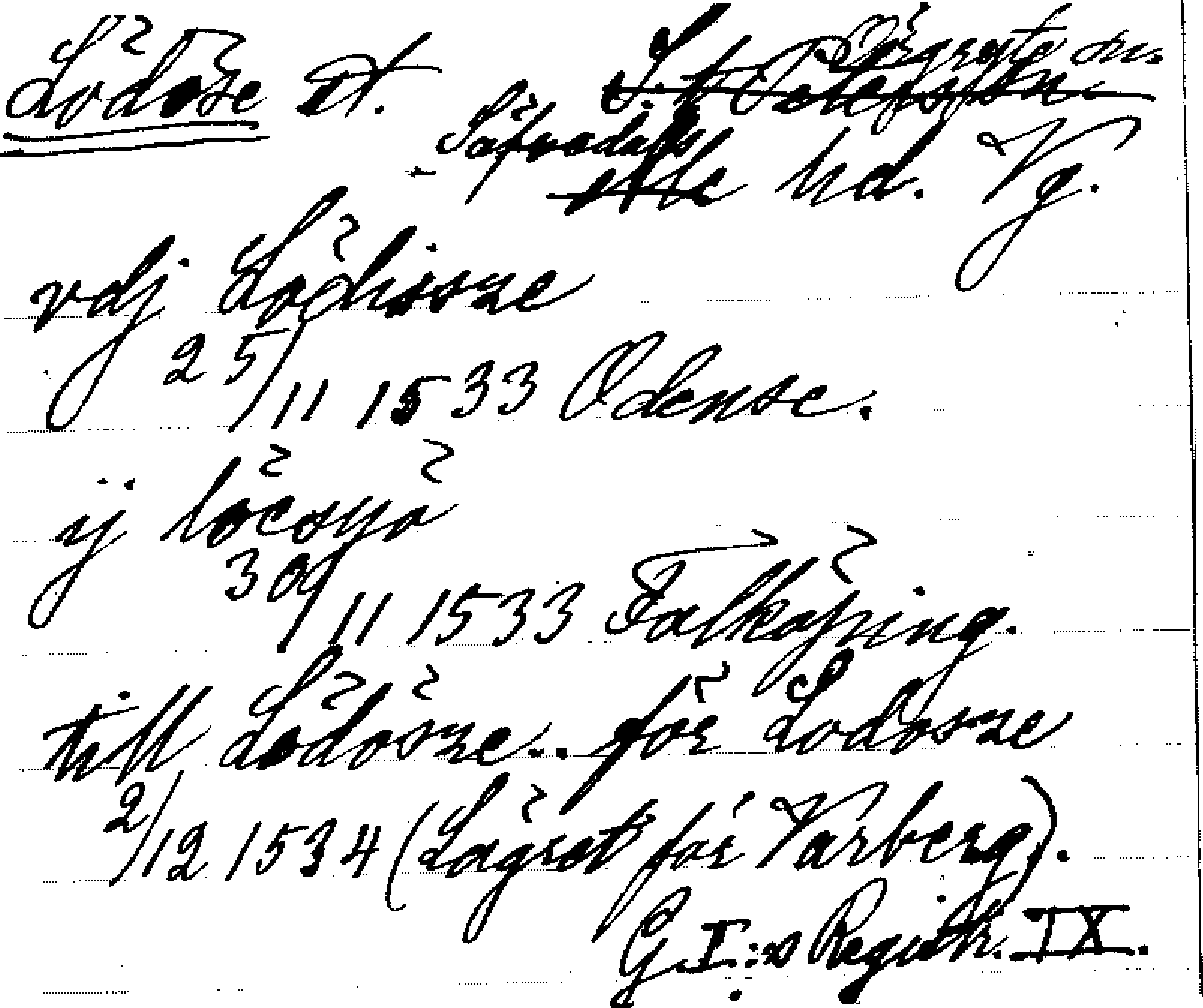 Lödöse st. Örgryte sn.
S:t Peters sn.
Säfvedals
Ale hd. Vg.
vdj Lödhissze
25/11 1533 Odense.
ij löesyö
30/11 1533 Falköping.
till Lödösze.. för Lodosze
2/12 1534 (Lägret för Varberg).
G. I:s Registr. IX.